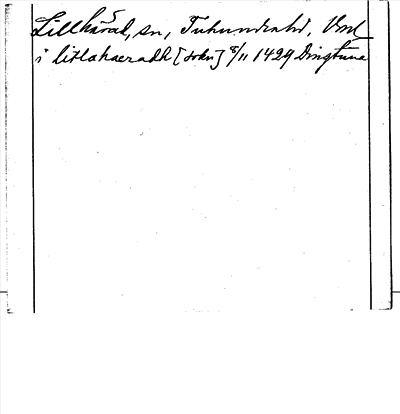 Lillhärad, sn, Tuhundra hd, Vml
i litlahæradh [sokn] 8/11 1429 Dingtuna